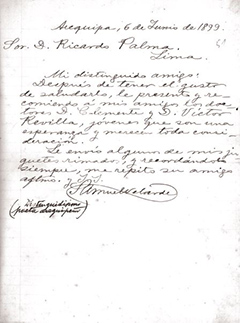 Arequipa, 6 de Junio de 1899.
Sor. D. Ricardo Palma.
Lima.
Mi distinguido amigo:
Después de tener el gusto
de saludarlo, le presento y re-
comiendo á mis amigos los doc-
tores D. Clemente y D. Víctor
Revilla, jóvenes que son una
esperanza y merecen toda consi-
deración.
Le envío alguno de mis ju-
guetes rimados, y recordándolo
siempre, me repito su amigo
afmo. y
Samuel Velarde
(Distinguidísimo
poeta arequipeño)